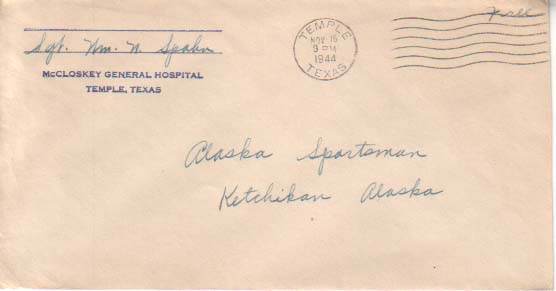 Free
TEMPLE
NOV 16
9 PM
1944
TEXAS
Sgt. Wm. N. Spohn
McCLOSKEY GENERAL HOSPITAL
TEMPLE, TEXAS
Alaska Sportsman
Ketchikan Alaska